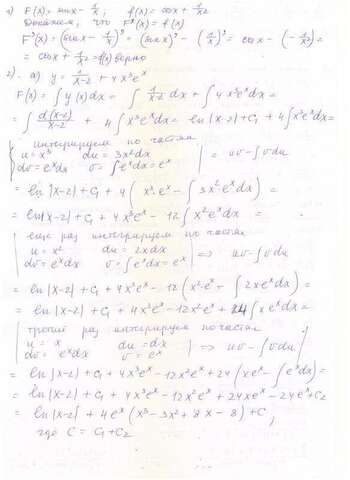 1) F(x) = sinx - 1/x; f(x) = cosx + 1/x²
Докажем, что F'(x) = f(x)
F'(x) = (sinx - 1/x)' = (sinx)' - (1/x)' = cosx - (-1/x²) =
= cosx + 1/x² = f(x) верно
2). а) y = 1/(x-2) + 4x³eˣ
F(x) = ∫ y(x)dx = ∫ 1/(x-2) dx + ∫ 4x³eˣdx =
= ∫ d(x-2)/(x-2) + 4∫x³eˣdx = ln|x-2| + C₁ + 4∫x³eˣdx =
интегрируем по частям
u = x³ du = 3x²dx
dv = eˣdx v = ∫eˣdx = eˣ | = uv - ∫vdu
= ln|x-2| + C₁ + 4(x³eˣ - ∫3x²eˣdx) =
= ln|x-2| + C₁ + 4x³eˣ - 12∫x²eˣdx =
еще раз интегрируем по частям
u = x² du = 2xdx
dv = eˣdx v = ∫eˣdx = eˣ | ⇒ uv - ∫vdu
= ln|x-2| + C₁ + 4x³eˣ - 12(x²eˣ - ∫2xeˣdx) =
= ln|x-2| + C₁ + 4x³eˣ - 12x²eˣ + 24∫xeˣdx =
третий раз интегрируем по частям
u = x du = dx
dv = eˣdx v = eˣ | ⇒ uv - ∫vdu
= ln|x-2| + C₁ + 4x³eˣ - 12x²eˣ + 24(xeˣ - ∫eˣdx) =
= ln|x-2| + C₁ + 4x³eˣ - 12x²eˣ + 24xeˣ - 24eˣ + C₂
= ln|x-2| + 4eˣ(x³ - 3x² + 8x - 8) + C,
где C = C₁ + C₂